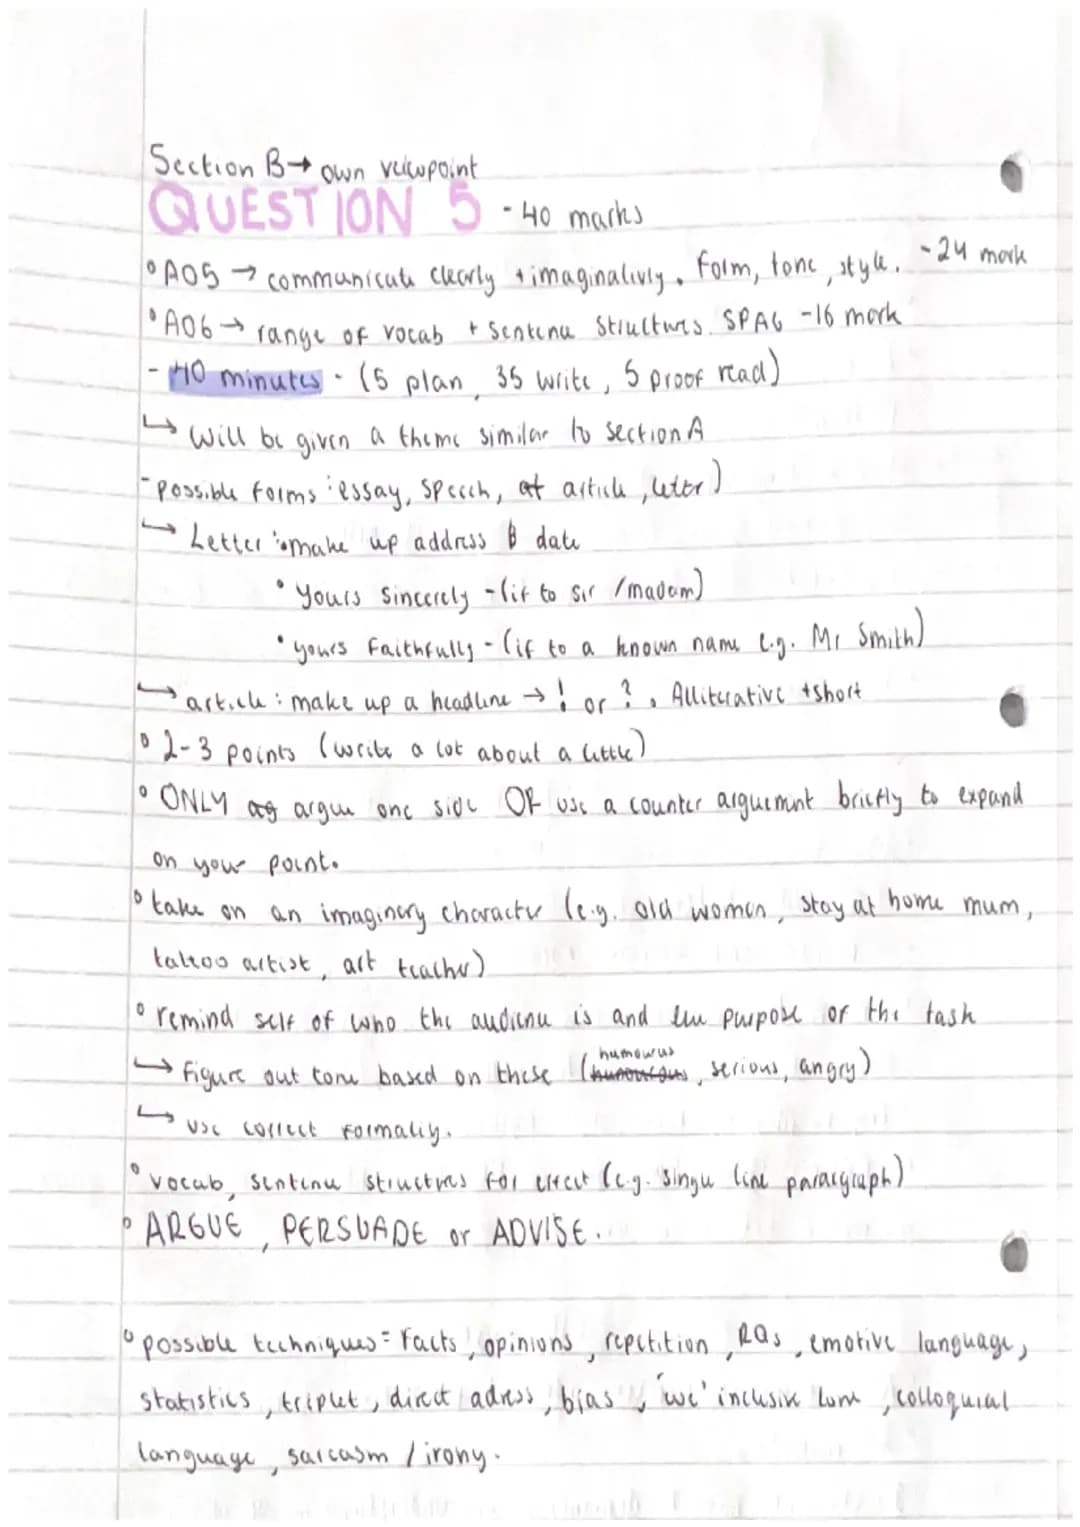 Section B → own veiwpoint
QUESTION 5 - 40 marks
° AO5 → communicate clearly + imaginativly. Form, tone, style. - 24 mark
° AO6 → range of vocab + sentence structures. SPAG - 16 mark
- 40 minutes - (5 plan, 35 write, 5 proof read)
↳ will be given a theme similar to section A
- possible forms: essay, speech, article, letter)
↳ Letter: make up address & date
• Yours sincerely - (if to sir / madam)
• yours faithfully - (if to a known name e.g. Mr Smith)
→ article: make up a headline → ! or ?. Alliterative + short
° 2-3 points (write a lot about a little)
° ONLY ag argue one side OR use a counter arguemnt briefly to expand
on your point.
° take on an imaginary character (e.g. old women, stay at home mum,
tattoo artist, art teacher)
° remind self of who the audience is and the purpose of the task
↳ figure out tone based on these (humourus, serious, angry)
↳ use correct formaliy.
° vocab, sentence structres for effect (e.g. single line paragraph)
° ARGUE, PERSUADE or ADVISE.
° possible techniques = facts, opinions, repetition, RQs, emotive language,
statistics, triplet, direct adress, bias, 'we' inclusive tone, colloquial
language, sarcasm / irony.